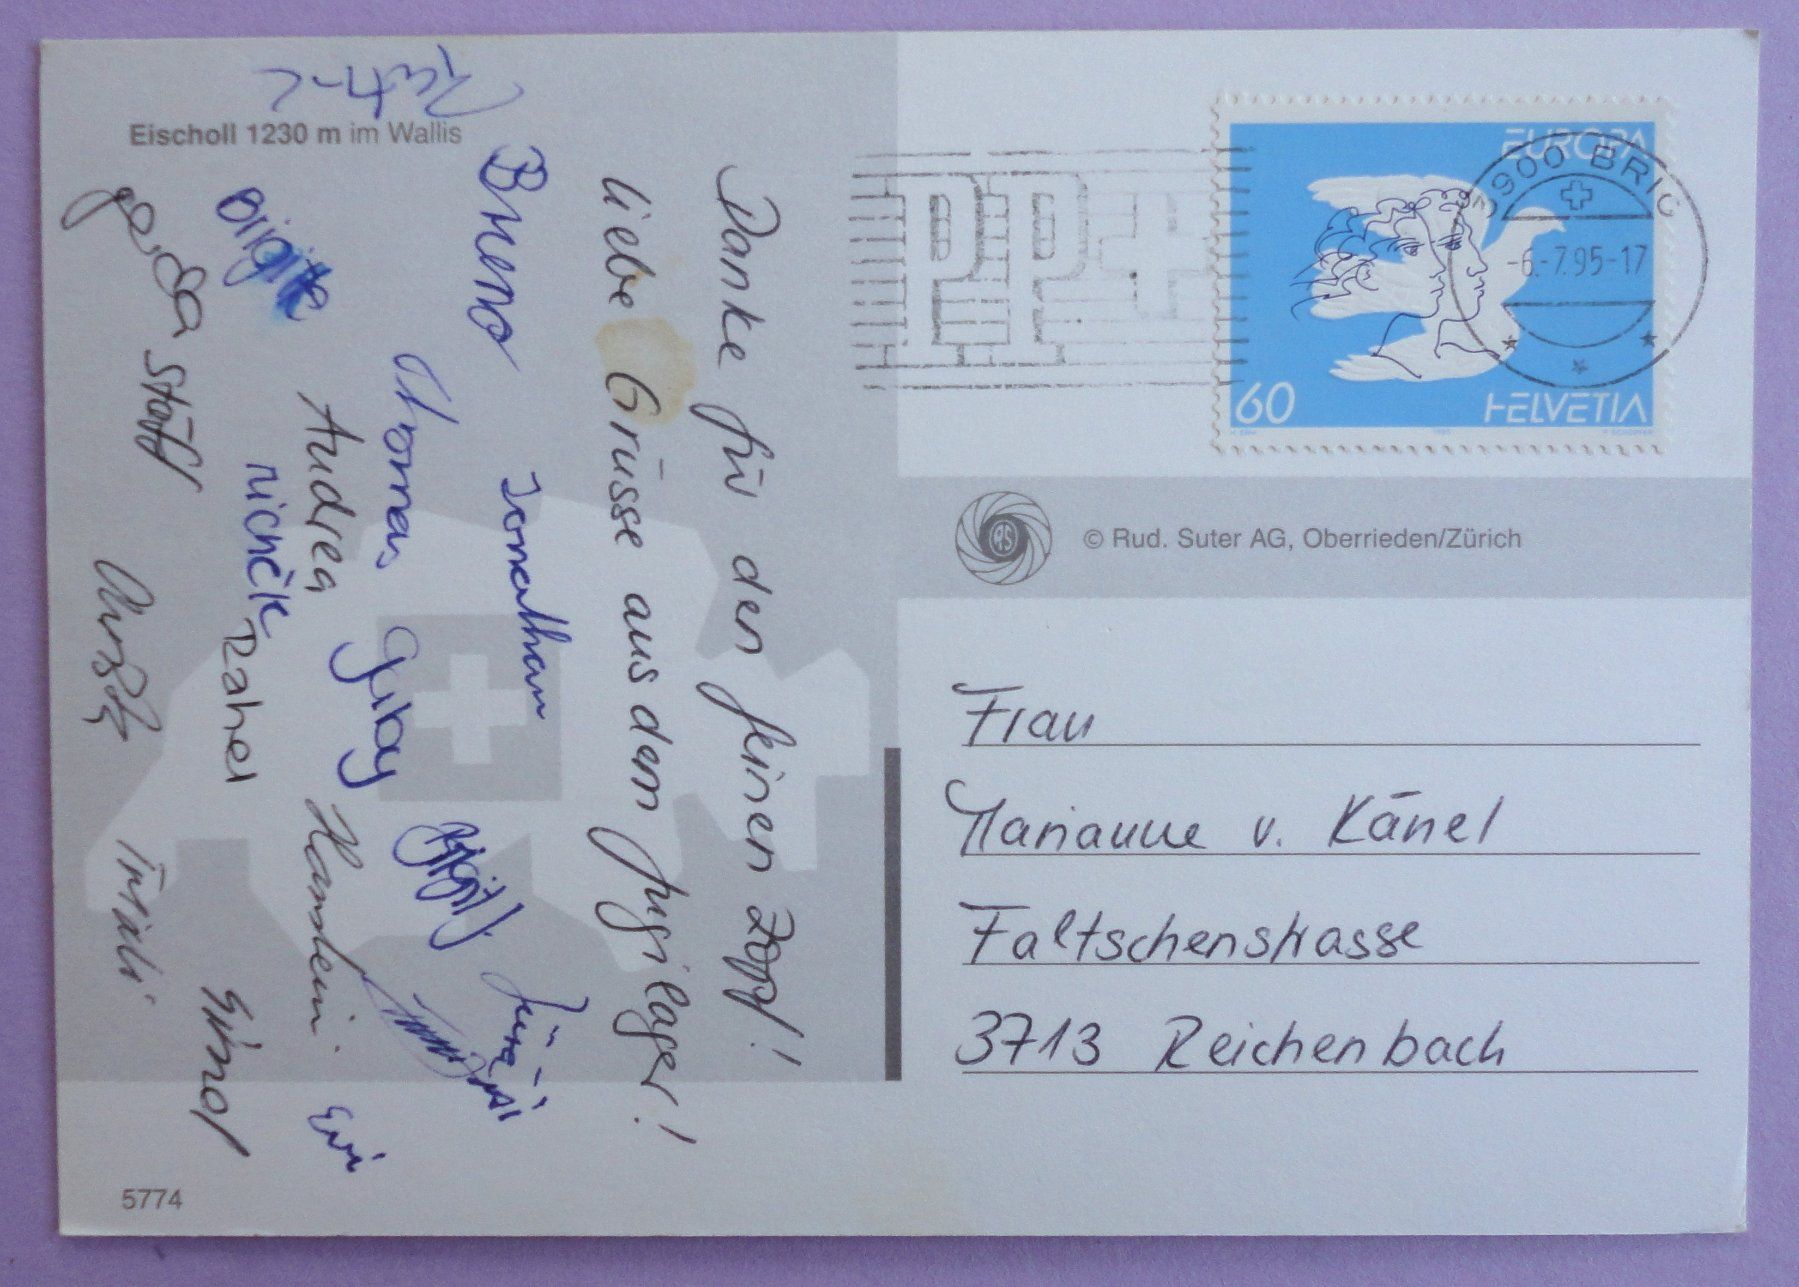 Eischoll 1230 m im Wallis
Danke für den feinen Zopf!
liebe Grüsse aus dem Jugilager!
Bruno Jonathan
Thomas Gaby
Andrea Hanslueni Evi
Brigitte Rahel Simol
gerda stöff Trudi
5774
EUROPA
60 HELVETIA
3900 BRIG
-6.-7.95-17
PP+
© Rud. Suter AG, Oberrieden/Zürich
Frau
Marianne v. Känel
Faltschenstrasse
3713 Reichenbach